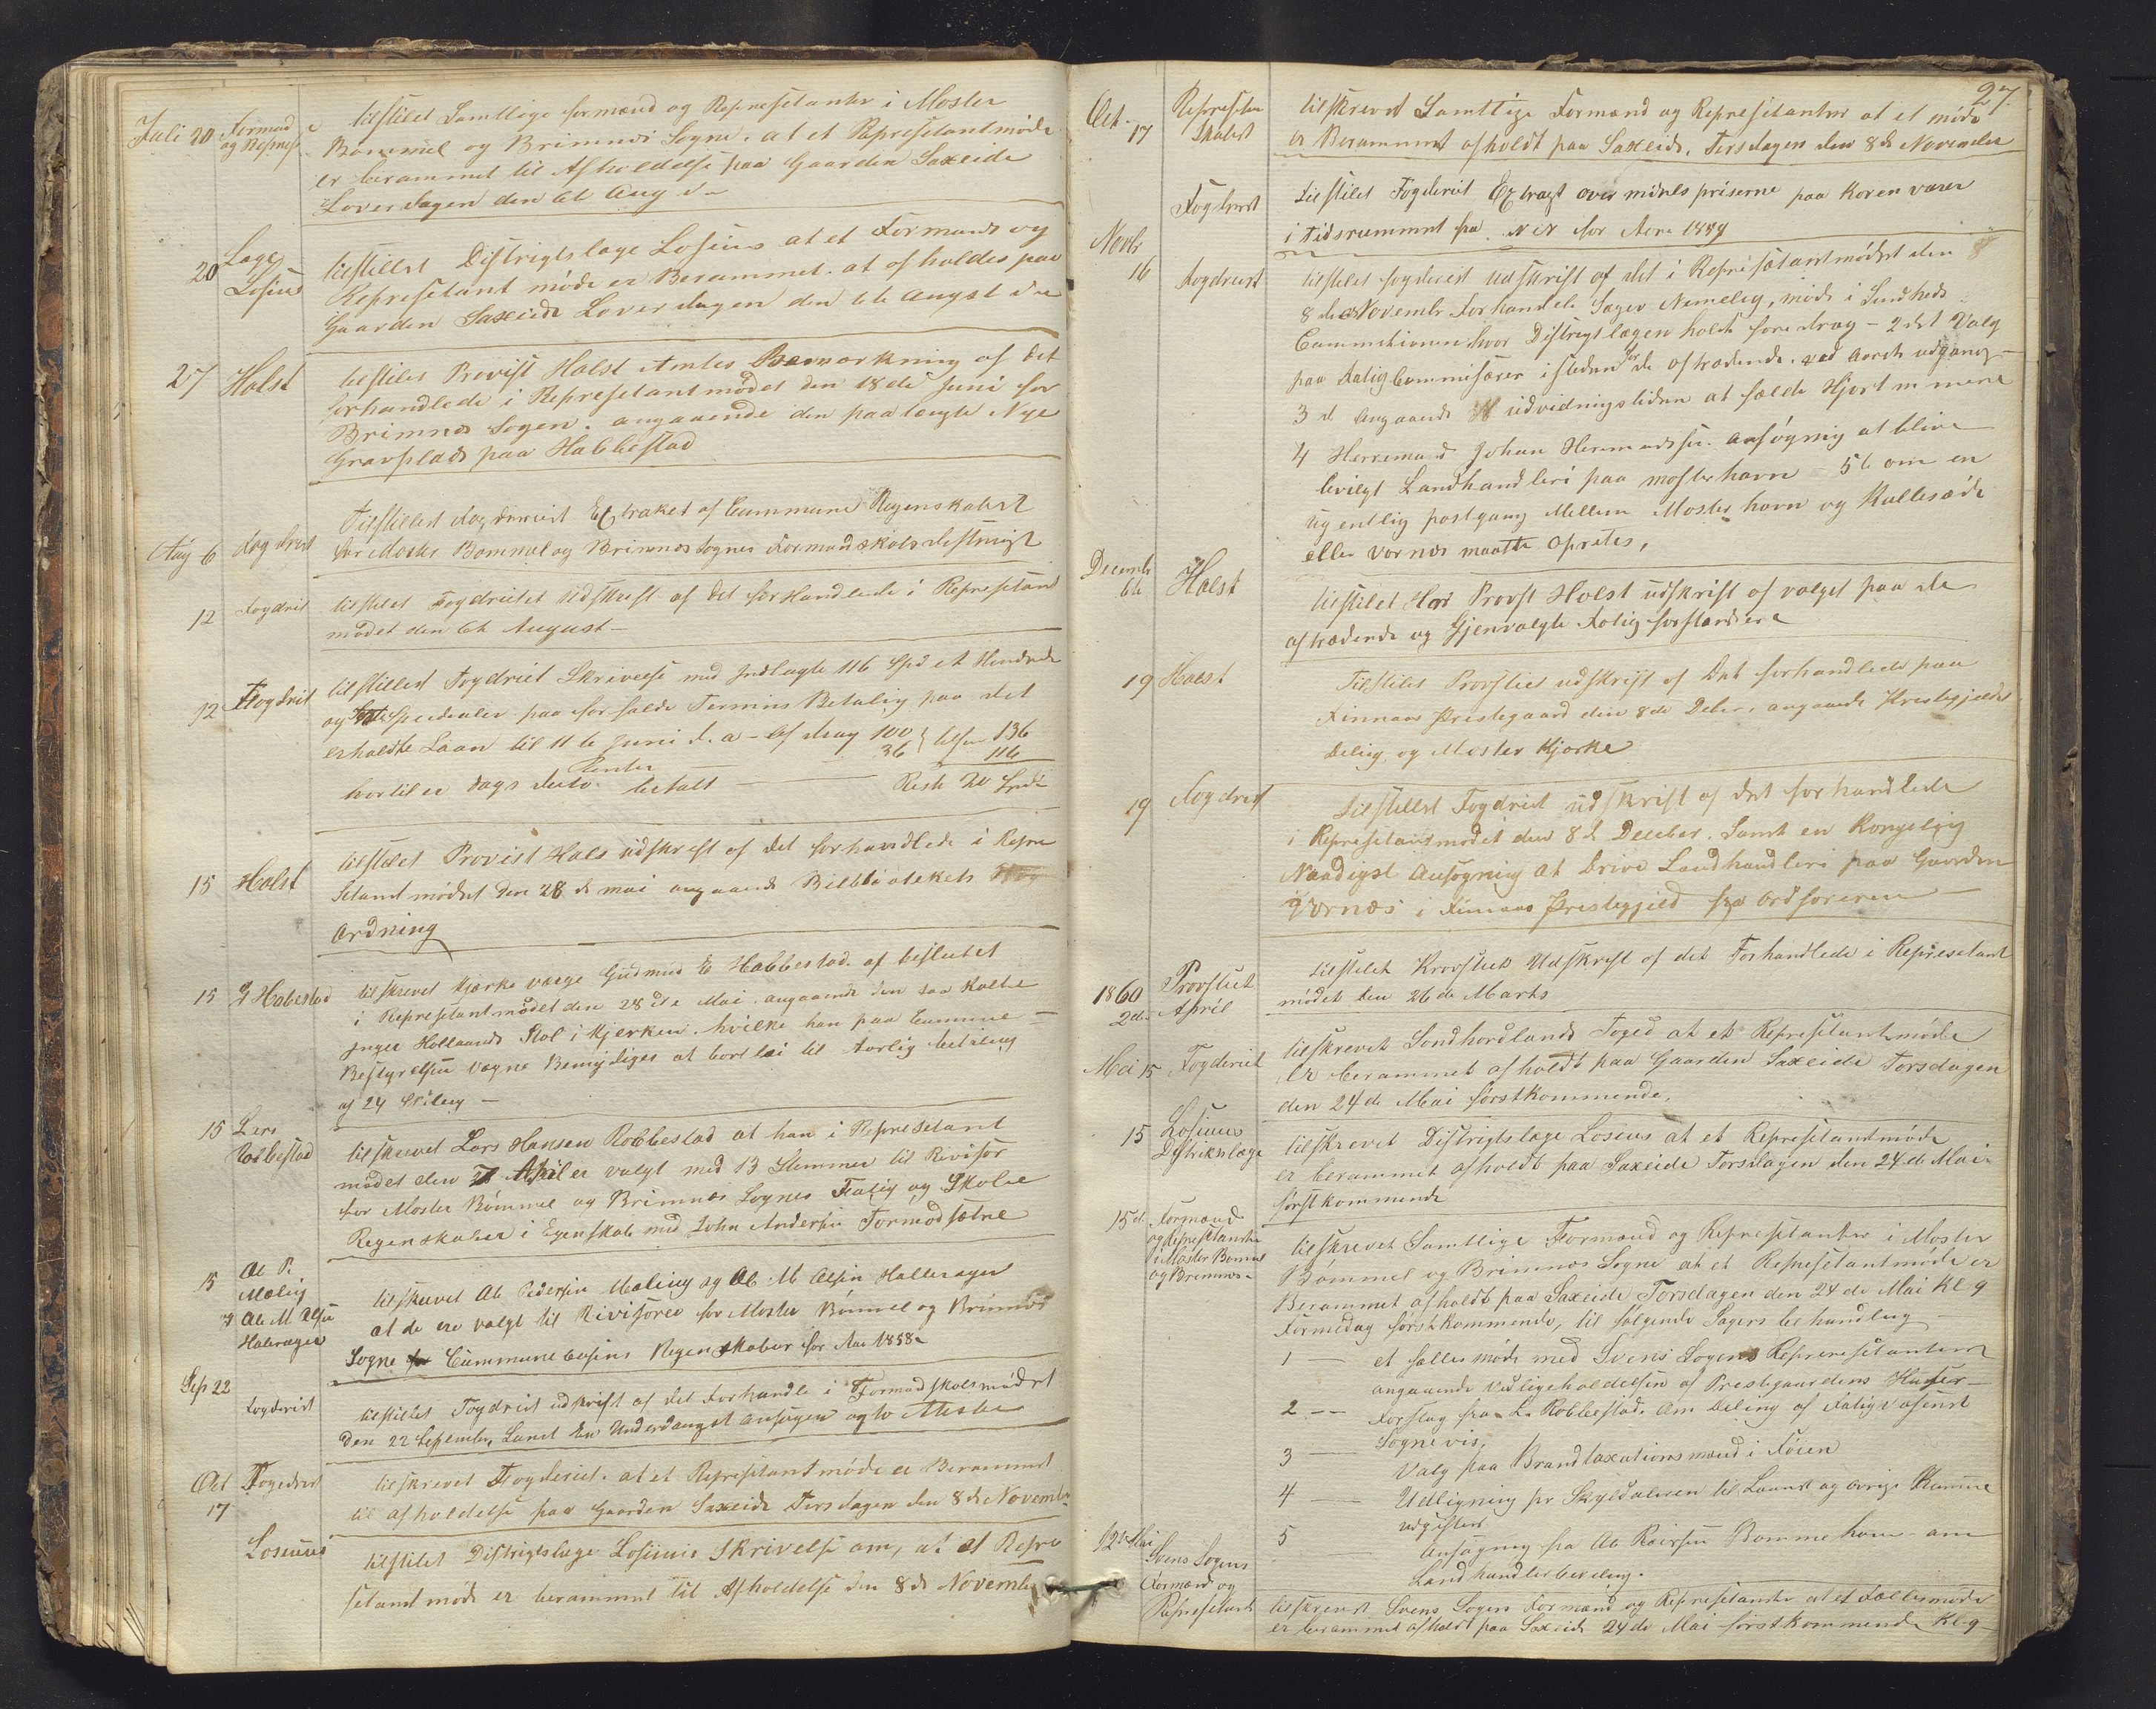 Juli 20 Formænd tilstilet Samtlige formænd og Represetanter i Moster
og Repræs Bømmel og Brimnes Sogne. at et Represetantmøde
er berammet til Afholdelse paa Gaarden Saxeide
Løverdagen den 6te Aug d
20 Læge tilstillet Distrigtslæge Losius at et Formands og
Losius Represetant møde er Berammet. at afholdes paa
Gaarden Saxeide Løverdagen den 6te Augst
27 Holst tilstilet Provist Holst Bemærkning af det
forhandlede i Represetantmødet den 18de Juni for
Brimnes Sogen. angaaende den paatengte Nye
Gravplads paa Habbestad
Aug 6 Fogdriet Tilstillet Fogderiet Extraket af Commune Regenskabet
for Moster Bømmel og Brimnes Sognes Formandskabs destrigt
12 Fogdriet tilstilet Fogdrietet Udskreft af det forhandlede i Represetant
mødet den 6te August
12 Fogdriet tilstillet Fogdriet Skrivelse med Indlagte 116 Spd et Hundrede
og Spesdaler paa forfalde Termins Betaling paa det
erholdte Laan til 11te Juni d. a - Afdrag 100 } tilsam 136
Renter 36 116
hvortil er dags dato betalt — Rest 20 Spd
15 Holst tilstilet Provist Hols udskreft af det forhandlede i Repre
setant mødet den 28de mai angaaende Bibliotekets
Ordning
15 G Habestad tilskrevet Kjærke værge Gudmud E Habbestad. af beslutet
i Represetantmødet den 28de Mai. angaaende den saa kalte
Inger Hollaands Stol i Kjerken. hvilke han paa Commune
Bestyrelsen vægne Bemyndiges at bortlei til Aarlig betaling
af 24 Skiling
15 Lars tilskrevet Lars Hansen Robbestad at han i Represetant
Robbestad mødet den April er valgt med 13 Stemmer til Revisor
for Moster Bømmel og Brimnes Sognes Fatig og Skole
Regenskaber i Egenskab med John Andersen Formodsætre
15 Ol P. tilskrevet Ole Pedersen Mæling og Ole M Olsen Halleragen
Mæling
Ole M Olsen at de ere valgt til Rivisorer for Moster Bømmel og Brimnes
Haleragen Sogne Cummunecasens Regenskaber for Aar 1858
Sep 22 Fogderiet tilstilet Fogdriet udskrift af det Forhandle i Formandskabsmødet
den 22 September, Samt En Underdanigst Ansøgen og to Atester
Oct Fogedriet tilskrevet Fogderiet. at et Represetantmøde er Berammet
17 til afholdelse paa Gaarden Saxeide Tirsdagen den 8de Novembr
Losiuus tilstilet Distrigtslæge Losiuus Skrivelse om, at et Repre
setant møde er berammet til Afholdelse den 8de November
27.
Oct. Represetan tilskrevet Samtlige Formænd og Represetanter at et møde
17 skabet er Berammet afholdt paa Saxeide. Tirsdagen den 8de November
Fogdriet tilstilet Fogderiet Extragt over midels priserne paa Koren varer
i tidsrummet fra for Aare 1859
Novbr
16 Fogdriet tilstilet fogderiet Udskrift af det i Represætantmødet den
8de November Forhandlede Sager Nemelig, møde i Sundheds
Commitionen hvor Distrigtslægen holdt foredrag - 2det Valg
paa Fatigcommisærer isteden for de aftrædende. ved Aarets udgang
3d Angaaende udvidningstiden at fælde Hjort m mere
4 Herremand Johan Hermandsen. ansøgnig at blive
bevilgt Landhandleri paa mosterhavn - 5te om en
ugentlig postgang Mellem Mosterhavn og Kullesæde
eller Vornes maatte Opretes,
Decembr
6te Holst tilstilet Herr Provst Holst udskrift af valget paa de
aftrædende og Gjenvalgte Fatigforstandere
19 Holst Tilstilet Provstiet udskrift af Det forhandlede paa
Finnaas Prestegaard den 8de Debr. angaaende Prestegjældet
Deling og Moster Kjærke
19 Fogdriet Tilstillet Fogdriet udskrift af det forhandlede
i Represetantmødet den 8de Decebr. Samt en Kongelig
Naadigst Ansøgning at Drive Landhandleri paa Gaarden
Vornes i Finnaas Prestegjeld fra Ordføreren
1860 Provstiet tilstilet Provstiet Udskrift af det Forhandlede i Represetant
2de April mødet den 26de Marts
Mai 15 Fogderiet tilskrevet Sondhordlands Foged at et Represetantmøde
er berammet afholdt paa Gaarden Saxeide Torsdagen
den 24de Mai førstkommende.
15 Losiuus tilskrevet Distrigtslæge Losius at et Represetantmøde
Distrikslæge er berammet afholdt paa Saxeide Torsdagen den 24de Mai
førstkommende
15d Formænd tilskrevet Samtlige Formænd og Represetanter i Moster
og Represetanter
i Moster Bømmel Bømmel og Brimnes Sogne at et Represetantmøde er
og Bremnes Berammet afholdt paa Saxeide Torsdagen den 24de Mai Kl 9
Formidag førstkommende, til følgende Sagers behandling
1 — et fælles møde med Svens Sogens Represetanter
angaaende Vedligeholdelsen af Prestegaardens Huser
2 — Forslag fra L. Robbestad. Om Deling af Fatigvæsenet
Sognevis,
3 — Valg paa Brandtaxationsmænd i Føien
4 — Udligning pr Skylddaleren til Laanet og øvrige Kumune
udgifter
5 — Ansøgning fra Ole Reiersen Bømmehavn om
Landhandlerbevling.
12 Mai
Svens Sogens
Formænd og
Represetant tilskrevet Svens Sogens Formænd og Represetanter at et Fællesmøde
er berammet afholdt paa Saxeide 24de Mai førstkommende Kl 9